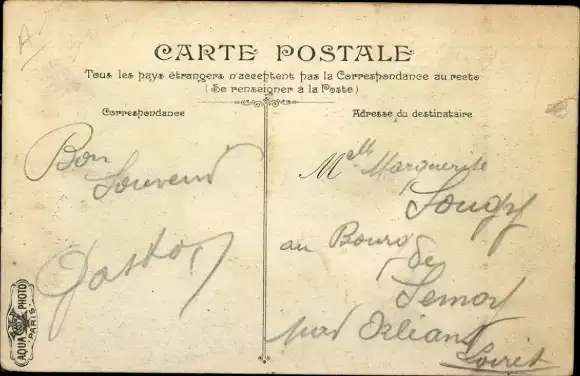 CARTE POSTALE
Tous les pays étrangers n'acceptent pas la Correspondance au recto
(Se renseigner à la Poste)
Correspondance
Adresse du destinataire
Bon
Souvenir
Gaston
Melle Marguerite
Sougy
au Bourg de
Semoy
par Orléans
Loiret
AQUA PHOTO
PARIS